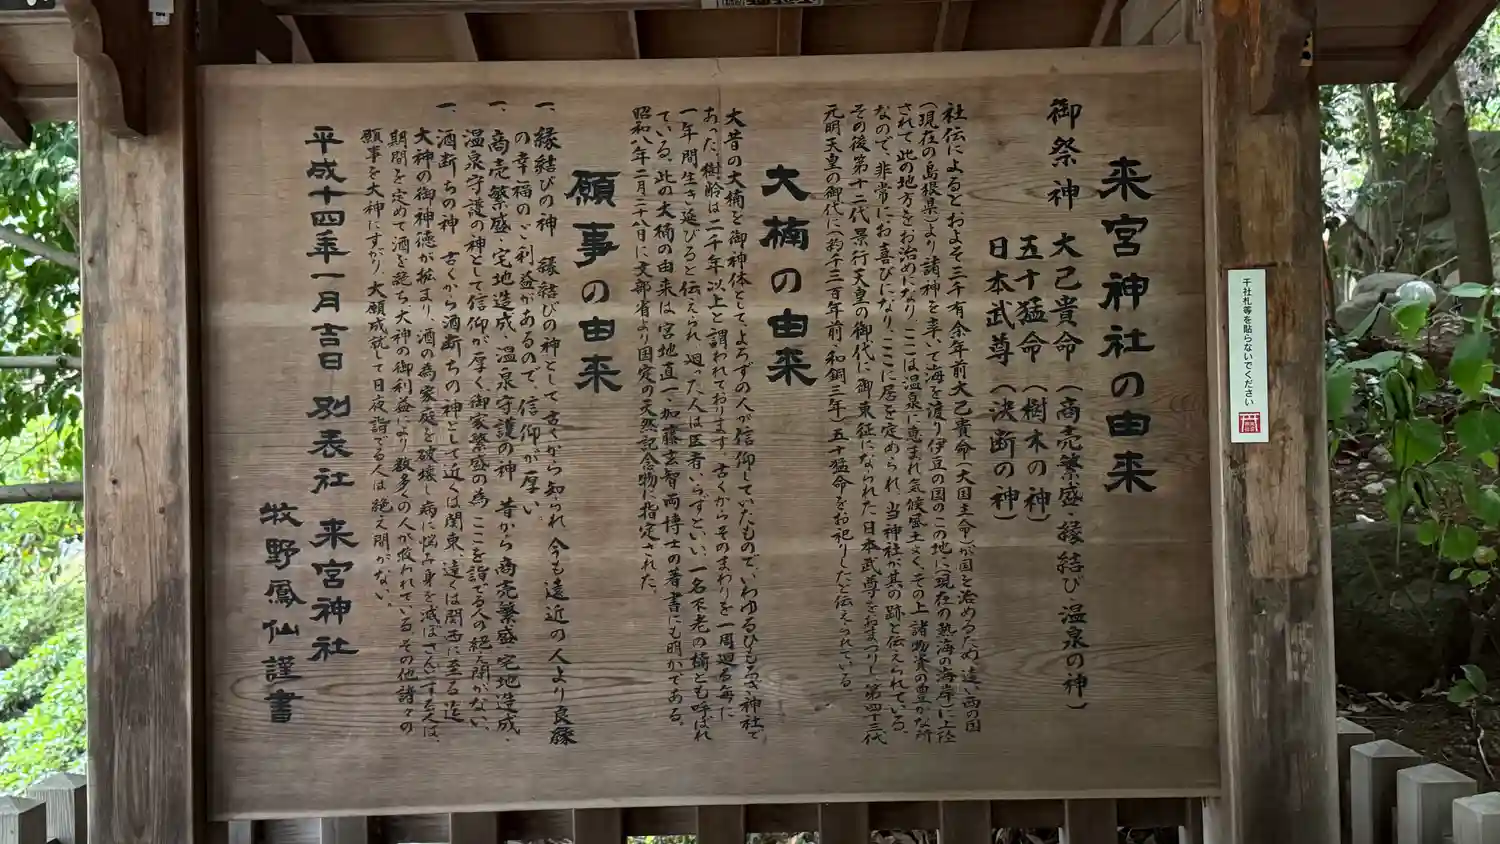 来宮神社の由来
御祭神 大己貴命(商売繁盛・縁結び・温泉の神)
五十猛命(樹木の神)
日本武尊(決断の神)
社伝によるとおよそ三千有余年前大己貴命(大国主命)が国を治めるため、遠い西の国
(現在の島根県)より諸神を率いて海を渡り伊豆の国のこの地に(現在の熱海の海岸)に上陸
されて、此の地方をお治めになり、ここは温泉に恵まれ気候風土よく、その上諸物資の豊かな所
なので、非常にお喜びになり、ここに居を定められ、当神社が其の跡と伝えられている。
その後第十二代景行天皇の御代に御東征になられた日本武尊をおまつりし、第四十三代
元明天皇の御代に(約千三百年前・和銅三年)五十猛命をお祀りしたと伝えられている。
大楠の由来
大昔の大楠を御神体としてよろずの人が信仰していたもので、いわゆるひもろぎ神社で
あった。樹齢は二千年以上と謂われております。古くからそのまわりを一周廻る毎に
一年間生き延びると伝えられ、廻った人は医者いらずといい、一名不老の楠とも呼ばれ
ている。此の大楠の由来は、宮地直一、加藤玄智両博士の著書にも明かである。
昭和八年二月二十八日に文部省より国定の天然記念物に指定された。
願事の由来
一、縁結びの神 縁結びの神として古くから知られ、今も遠近の人より良縁
の幸福のご利益があるので、信仰が厚い。
一、商売繁盛・宅地造成・温泉守護の神 昔から商売繁盛・宅地造成・
温泉守護の神として信仰が厚く、御家繁盛の為、ここを詣でる人の絶え間がない、
一、酒断ちの神 古くから酒断ちの神として近くは関東、遠くは関西に至る迄
大神の御神徳が拡まり、酒の為家庭を破壊し病に悩み身を滅ぼさんとする人は、
期間を定めて酒を絶ち、大神の御利益により数多くの人が救われている。その他諸々の
願事を大神にすがり、大願成就して日夜詣でる人は絶え間がない。
平成十四年一月吉日 別表社 来宮神社
牧野鳳仙謹書
千社札等を貼らないでください